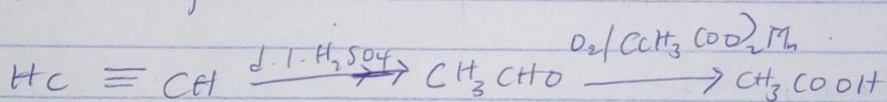 HC ≡ CH —d.1.H₂SO₄→ CH₃CHO —O₂/(CH₃COO)₂Mn→ CH₃COOH